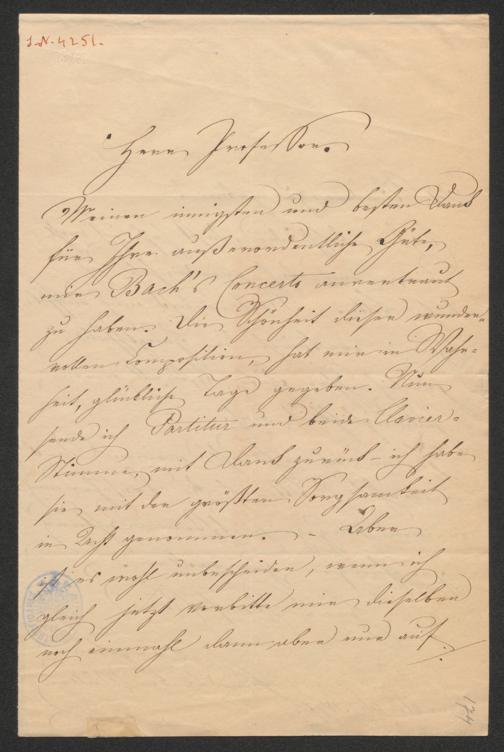 I.N. 4251.
Herr Professor.
Meinen innigsten und besten Dank
für Ihre außerordentliche Güte,
mir Bach's Concerte anvertraut
zu haben. Die Schönheit dieser wunder-
vollen Composition, hat mir in Wahr-
heit, glückliche Tage gegeben. Nun
sende ich Partitur und beide Clavier-
Stimme, mit Dank zurück – ich habe
sie mit der größten Sorgsamkeit
in Acht genommen. – Aber
ist es wohl unbescheiden, wenn ich
gleich jetzt erbitte mir dieselben
noch einmahl dann aber nur auf
174